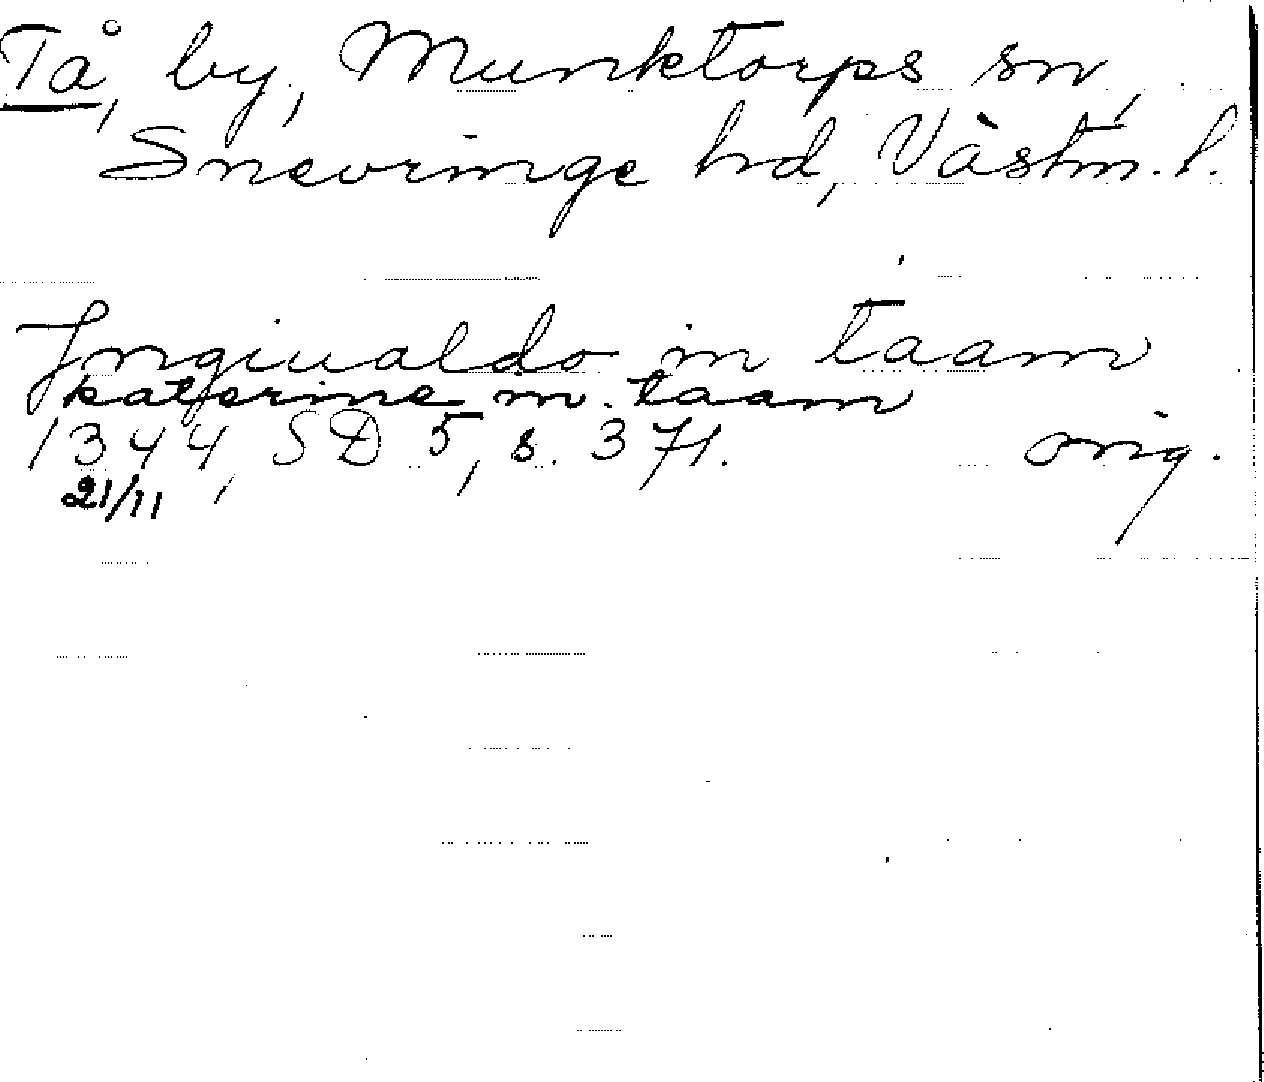 Tå, by, Munktorps sn,
Snevringe hd, Västm. l.
Jngiualdo in taam
katerine in taam
1344, SD 5, s. 371. orig.
21/11